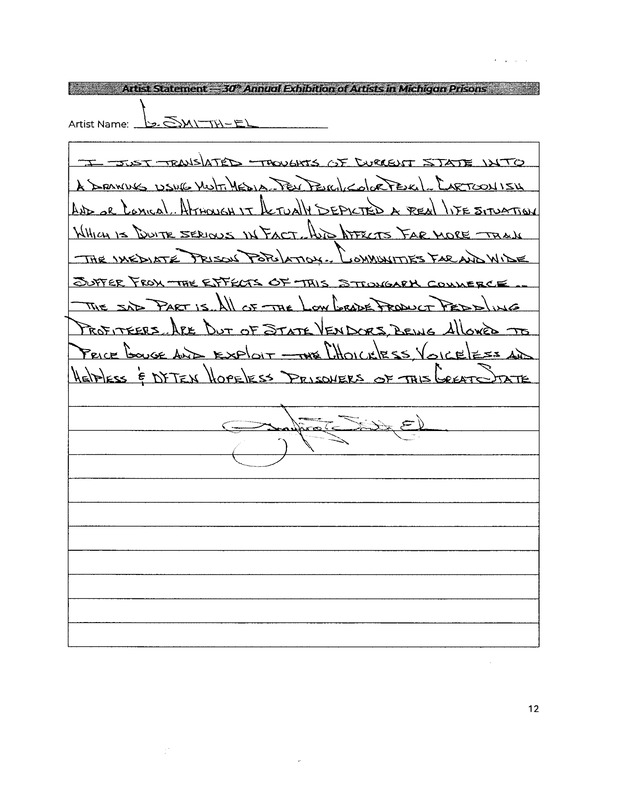 Artist Statement — 30th Annual Exhibition of Artists in Michigan Prisons
Artist Name: G. SMITH-EL
I JUST TRANSLATED THOUGHTS OF CURRENT STATE INTO
A DRAWING USING MULTIMEDIA.. PEN PENCIL, COLOR PENCIL.. CARTOONISH
AND OR COMICAL.. ALTHOUGH IT ACTUALLY DEPICTED A REAL LIFE SITUATION
WHICH IS QUITE SERIOUS IN FACT.. AND AFFECTS FAR MORE THAN
THE IMEDIATE PRISON POPULATION.. COMMUNITIES FAR AND WIDE
SUFFER FROM THE EFFECTS OF THIS STRONGARM COMMERCE ..
THE SAD PART IS, ALL OF THE LOW GRADE PRODUCT PEDDLING
PROFITEERS.. ARE OUT OF STATE VENDORS, BEING ALLOWED TO
PRICE GOUGE AND EXPLOIT THE CHOICELESS, VOICELESS AND
HELPLESS & OFTEN HOPELESS PRISONERS OF THIS GREAT STATE
12